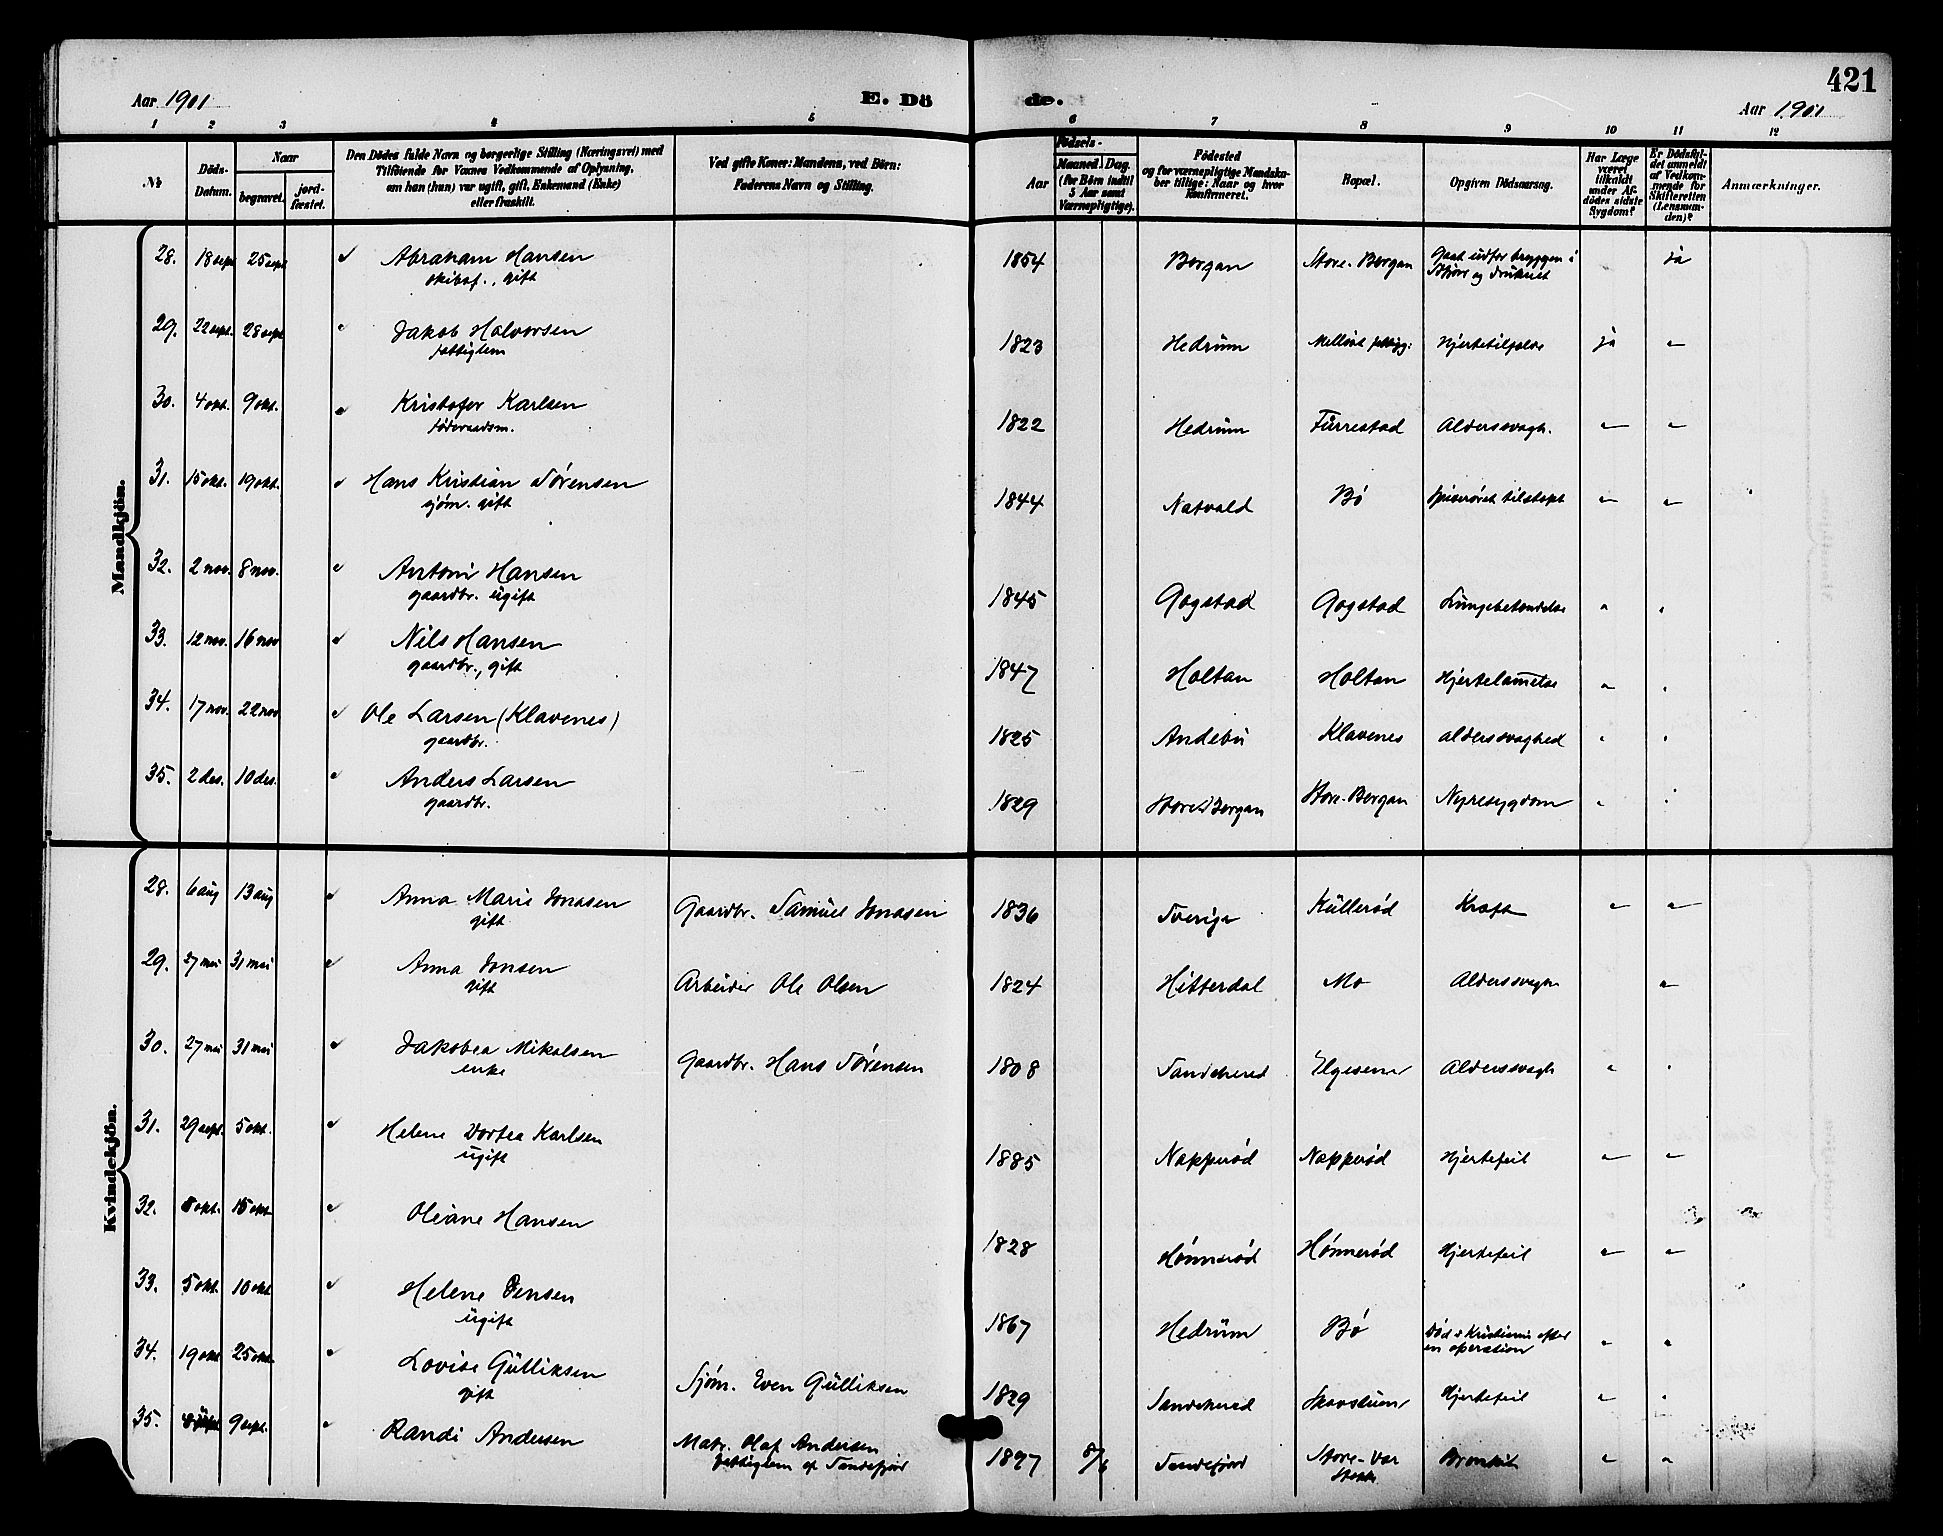 421
Aar 1901 E. Dö de. Aar 1901
1 2 3 4 5 6 7 8 9 10 11 12
No
Döds-Datum.
Naar
begravet.
jord-fæstet.
Den Dödes fulde Navn og borgerlige Stilling (Næringsvei) med
Tilföiende for Voxnes Vedkommende af Oplysning,
om han (hun) var ugift, gift, Enkemand (Enke)
eller fraskilt.
Ved gifte Koner: Mandens, ved Börn:
Faderens Navn og Stilling.
Födsels-
Aar
Maaned.
Dag.
(for Börn indtil
5 Aar samt
Værnepligtige).
Födested
og for værnepligtige Mandska-
ber tillige: Naar og hvor
Konfirmeret.
Bopæl.
Opgiven Dödsaarsag.
Har Læge
været
tilkaldt
under Af-
dödes sidste
Sygdom?
Er Dödsfal-
det anmeldt
af Vedkom-
mende for
Skifteretten
(Lensman-
den)?
Anmærkninger.
Mandkjön.
28. 18 sept 25 sept Abraham Hansen 1854 Bergan Store-Bergan Gaat udfor bryggen i ja
skibsf., gift
og druknet
29. 22 sept. 28 sept Jakob Halvorsen 1823 Hedrum Hjertetilfælde ja "
fattiglem
30. 4 okt. 9 okt. Kristofer Karlsen 1822 Hedrum Furrestad Alderssvagh. " "
föderaadsm.
31. 15 okt. 19 okt. Hans Kristian Sørensen 1844 Natvald Bø Spiserøret tilstopt " "
sjøm. gift
32. 2 nov. 8 nov. Anton Hansen 1845 Gogstad Gogstad Lungebetændelse " "
gaardbr. ugift
33. 12 nov. 16 nov Nils Hansen 1847 Holtan Holtan Hjertelammelse " "
gaardbr., gift
34. 17 nov. 22 nov Ole Larsen (Klavenes) 1825 Andebu Klavenes alderssvaghed " "
gaardbr.
35. 2 des. 10 des. Anders Larsen 1829 Store Bergan Store-Bergan Nyresygdom " "
gaardbr.
Kvindekjön.
28. 6 aug 13 aug Anna Marie Jonasen Gaardbr. Samuel Jonasen 1836 Sverige Kullerød Kræft " "
gift
29. 27 mai 31 mai Anna Jonsen Arbeider Ole Olsen 1824 Hitterdal Mo Alderssvagh "
gift
30. 27 mai 31 mai Jakobea Mikalsen Gaardbr. Hans Sørensen 1808 Sandeherred Elgesem Alderssvagh " "
enke
31. 29 sept. 5 okt. Helene Dortea Karlsen 1885 Napperød Napperød Hjertefeil " "
ugift
32. 8 okt. 15 okt. Oleane Hansen 1828 Hønnerød Hønnerød Hjertefeil " "
33. 5 okt. 10 okt Helene Jensen 1867 Hedrum Bø Død i Kristiania efter " "
ugift
en operation
34. 19 okt 25 okt. Lovise Gulliksen Sjøm. Even Gulliksen 1829 Sandeherred Hjertefeil " "
gift
35. 9 sept. Randi Andersen Matr. Olaf Andersen 1897 8/6 Sandefjord Store- Bronkit " "
fattiglem af Sandefjord